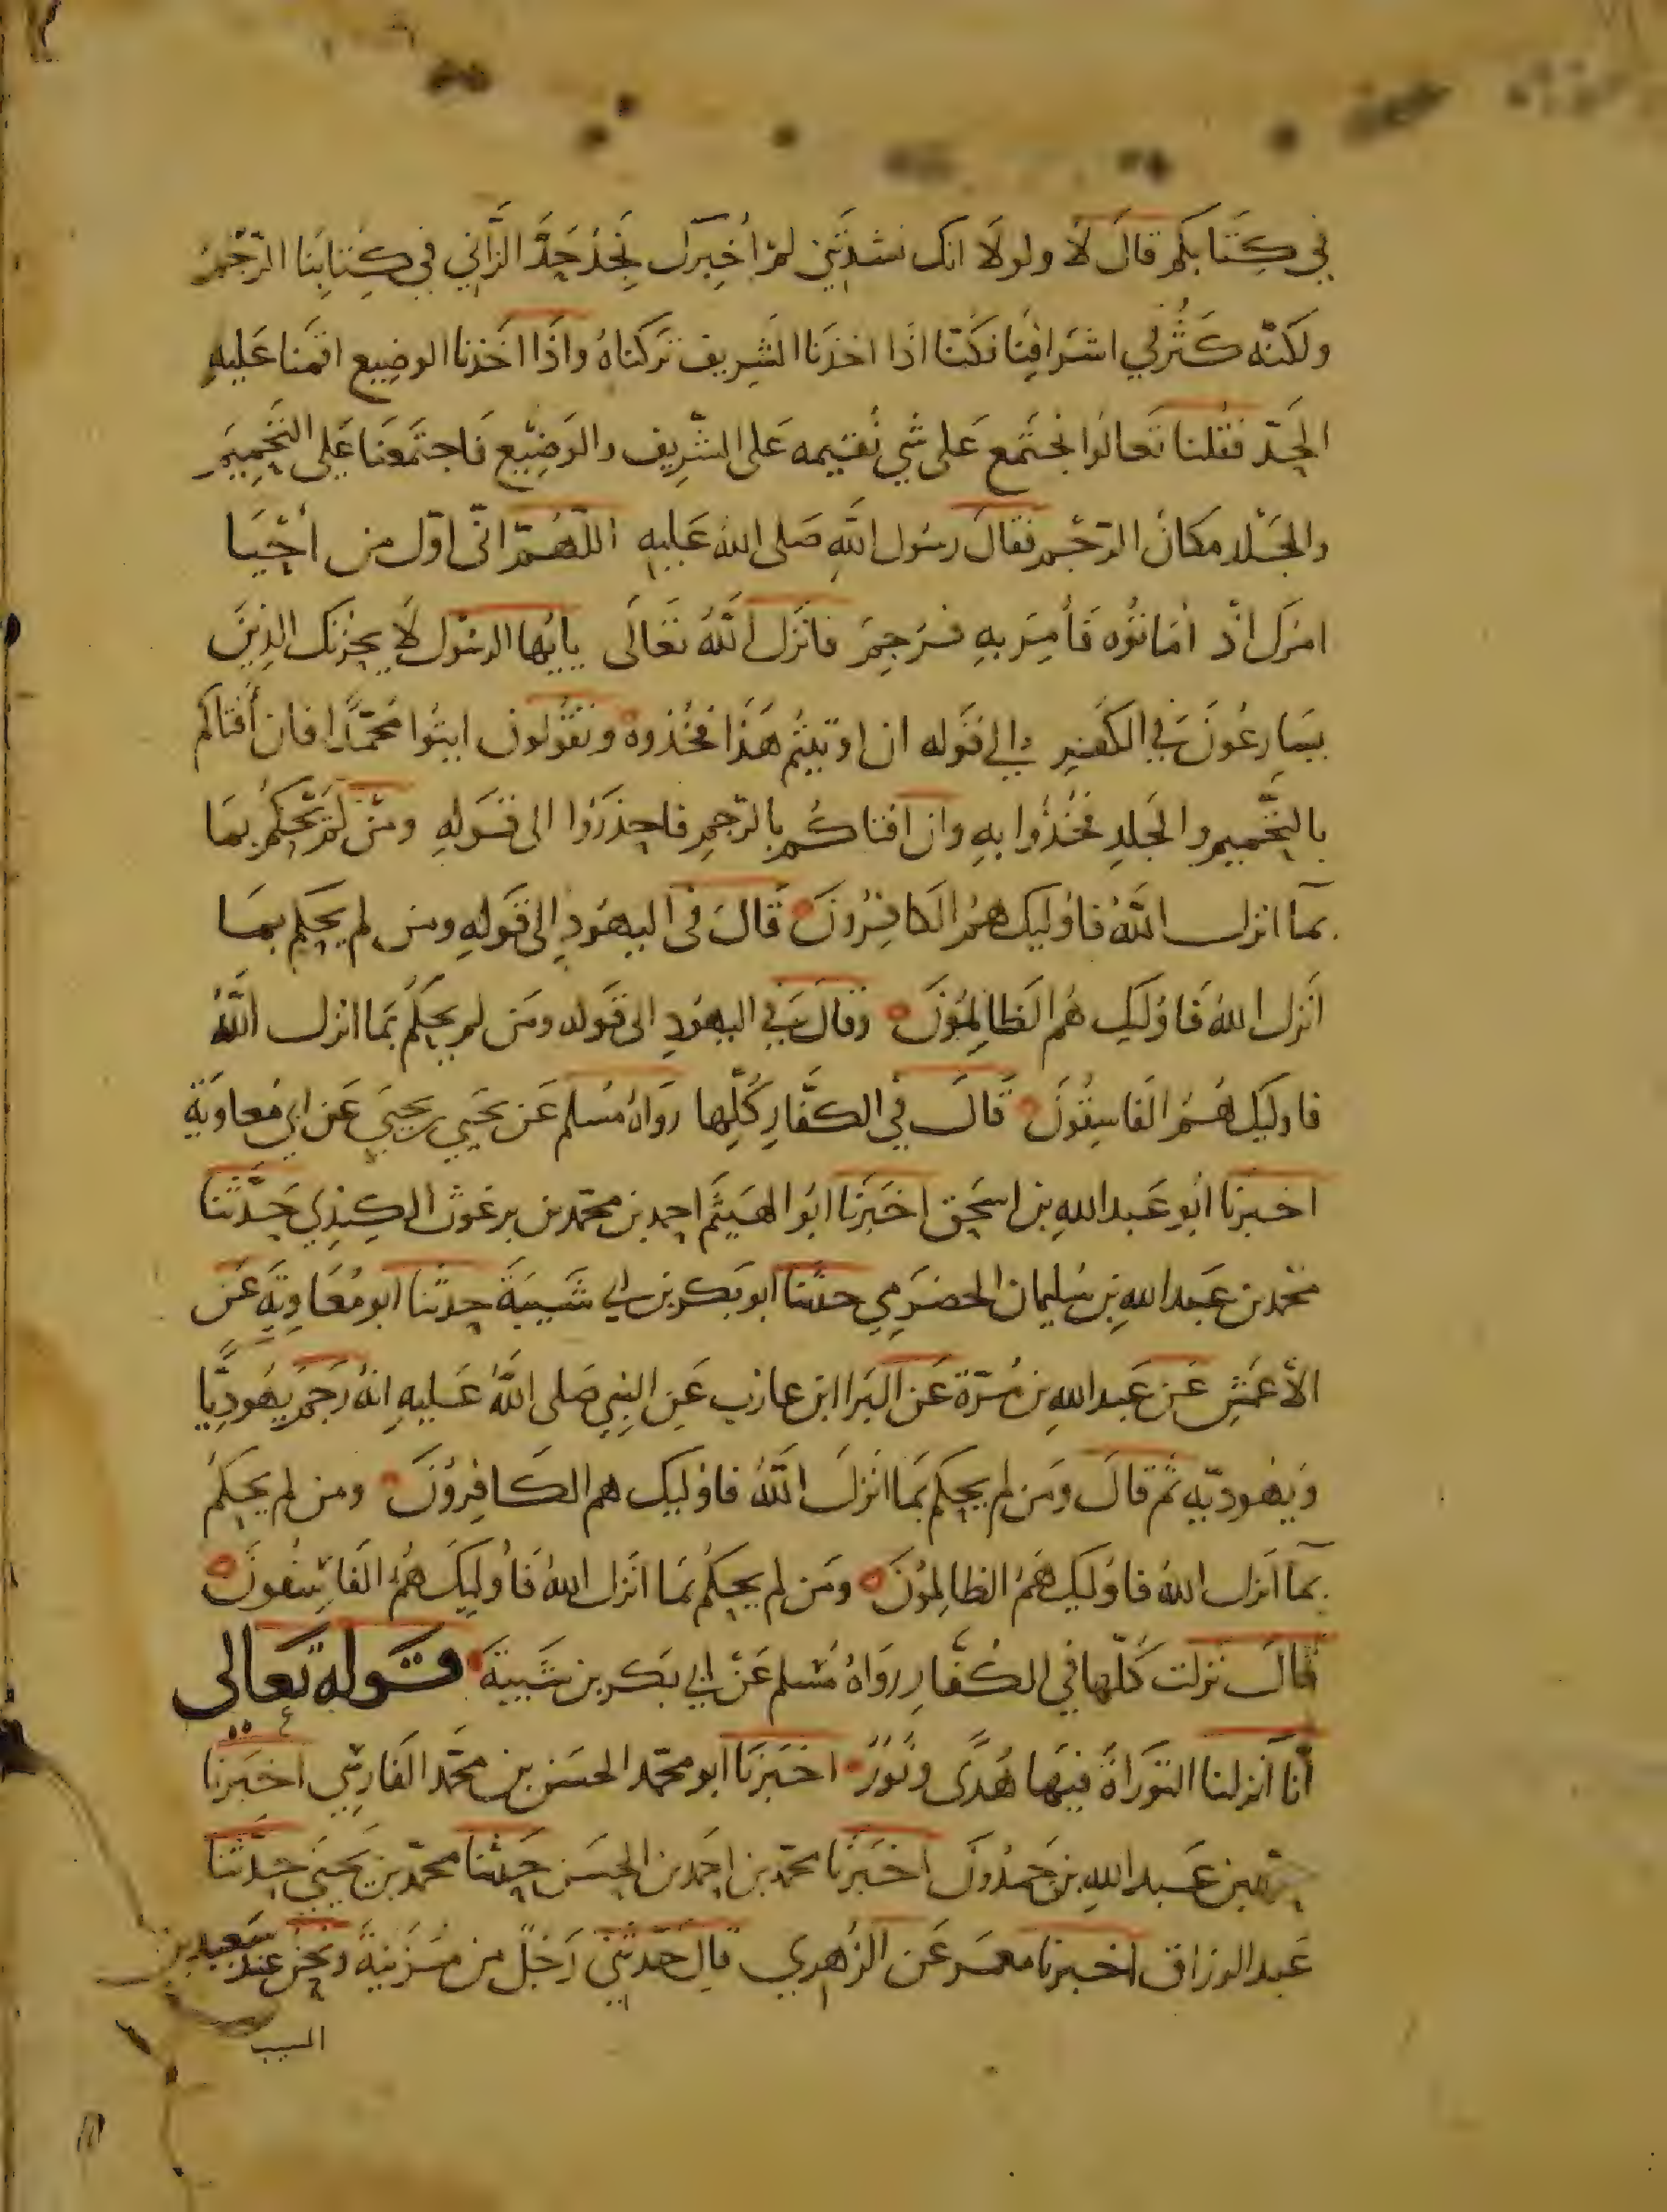 في كتابكم قال لا ولولا انك نشدتني لم اخبرك نجد حد الزاني في كتابنا الرجم
ولكنه كثر في اشرافنا فكنا اذا اخذنا الشريف تركناه واذا اخذنا الوضيع اقمنا عليه
الحد فقلنا تعالوا نجتمع على شي نقيمه على الشريف والوضيع فاجتمعنا على التحميم
والجلد مكان الرجم فقال رسول الله صلى الله عليه اللهم اني اول من أحيا
امرك اذ اماتوه فأمر به فرجم فانزل الله تعالى يايها الرسول لا يحزنك الذين
يسارعون في الكفر الى قوله ان اوتيتم هذا فخذوه وتقولون ايتوا محمدا فان أفتاكم
بالتحميم والجلد فخذوا به وان افتاكم بالرجم فاحذروا الى قوله ومن لم يحكم بما
بما انزل الله فاوليك هم الكافرون قال في اليهود الى قوله ومن لم يحكم بما
أنزل الله فاوليك هم الظالمون وقال في اليهود الى قوله ومن لم يحكم بما انزل الله
فاوليك هم الفاسقون قال في الكفار كلها رواه مسلم عن يحيى بن يحيى عن ابي معاوية
اخبرنا ابو عبد الله بن اسحق اخبرنا ابو الهيثم احمد بن محمد بن برغوث الكندي حدثنا
محمد بن عبد الله بن سليمان الحضرمي حدثنا ابو بكر بن ابي شيبة حدثنا ابو معاوية عن
الأعمش عن عبد الله بن مرة عن البرا ابن عازب عن النبي صلى الله عليه انه رجم يهوديا
ويهودية ثم قال ومن لم يحكم بما انزل الله فاوليك هم الكافرون ومن لم يحكم
بما انزل الله فاوليك هم الظالمون ومن لم يحكم بما انزل الله فأوليك هم الفاسقون
قال نزلت كلها في الكفار رواه مسلم عن ابي بكر بن شيبة قوله تعالى
أنا أنزلنا التوراة فيها هدى ونور اخبرنا ابو محمد الحسن بن محمد الفارسي اخبرنا
محمد بن عبد الله بن حمدون اخبرنا محمد بن احمد بن الحسن حدثنا محمد بن يحيى حدثنا
عبد الرزاق اخبرنا معمر عن الزهري قال حدثني رجل من مزينة ونحن عند سعيد بن
المسيب